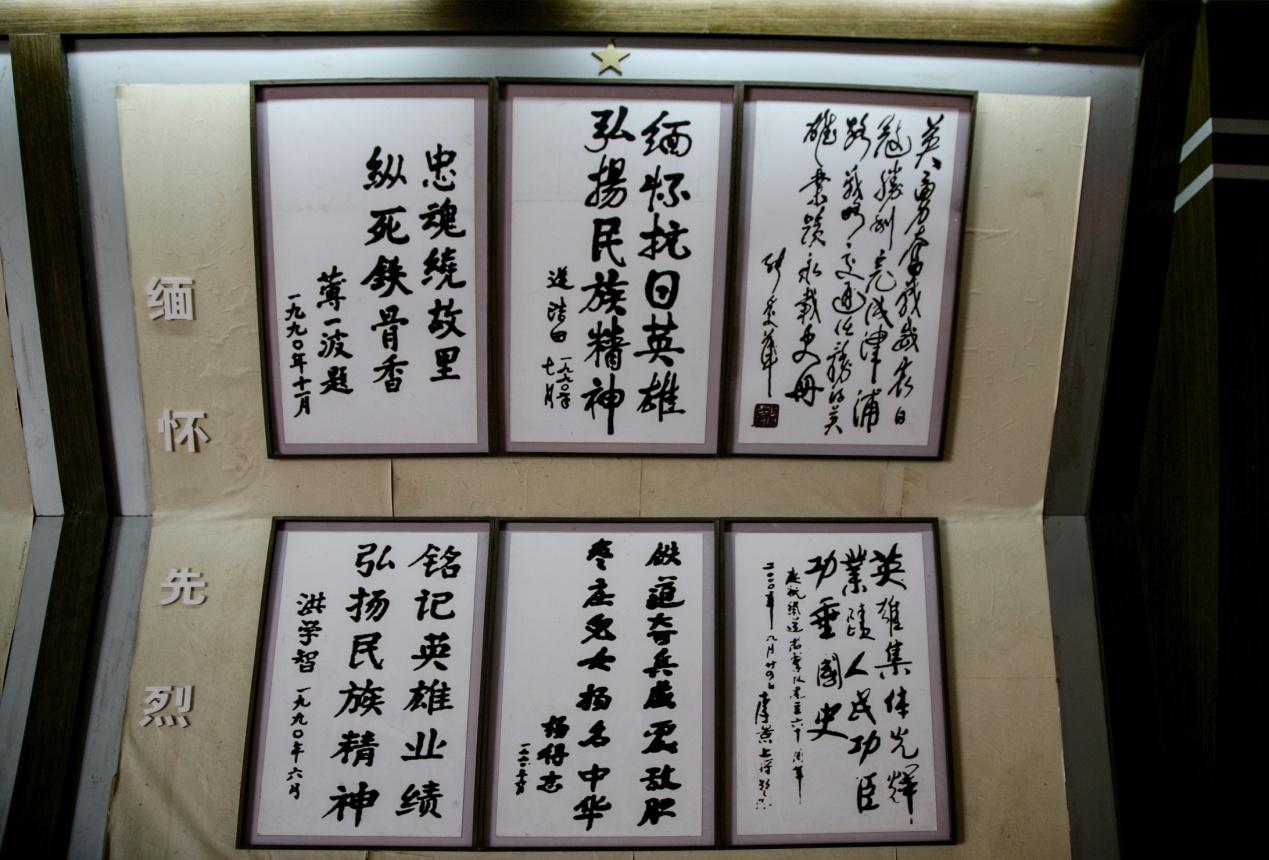 缅怀先烈
英勇奋战岁长日
寇胜利完成津浦
路战略交通任务的英
雄业绩永载史册
缅怀抗日英雄
弘揚民族精神
迟浩田 一九九〇年
七月
忠魂繞故里
纵死鉄骨香
薄一波题
一九九〇年十一月
英雄集体光辉
業绩人民功臣
功垂國史
二〇〇〇年八月
铭记英雄业绩
弘扬民族精神
洪学智 一九九〇年六月
鉄道奇兵威震敌胆
枣庄儿女扬名中华